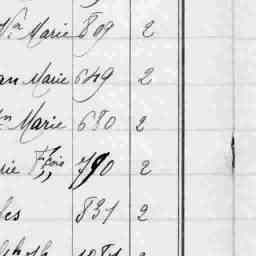 Nn Marie 809 2
an Marie 649 2
n Marie 680 2
rie Fçoise 790 2
les 831 2
2